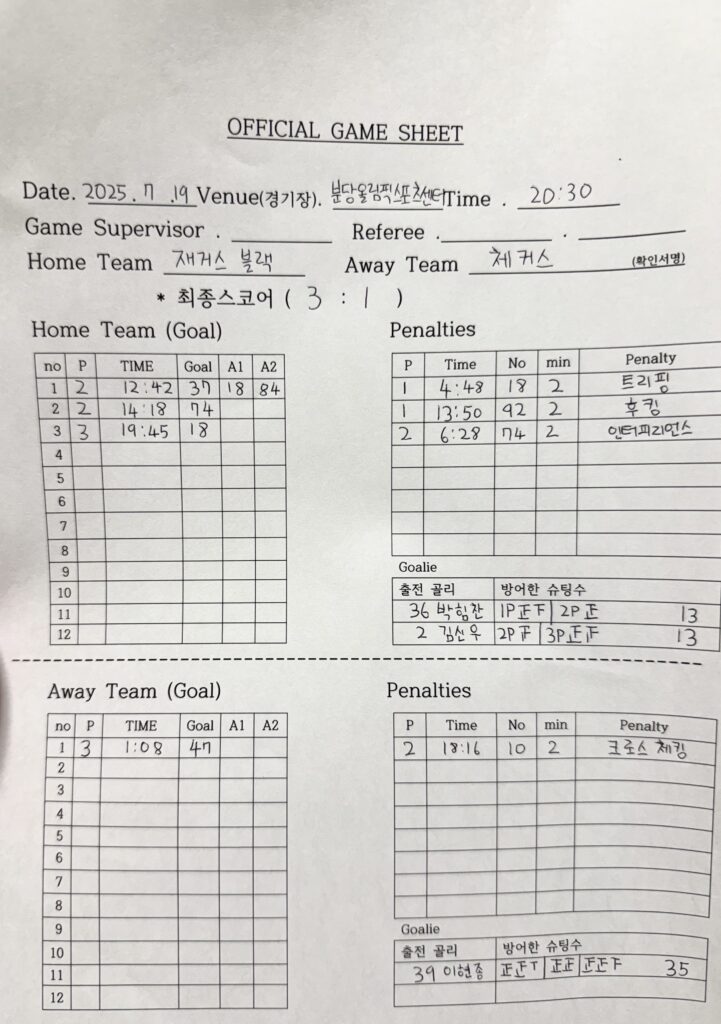 OFFICIAL GAME SHEET
Date. 2025. 7 .19 Venue(경기장). 분당올림픽스포츠센터 Time . 20:30
Game Supervisor . Referee . .
Home Team 재커스 블랙 Away Team 체커스 (확인서명)
* 최종스코어 ( 3 : 1 )
Home Team (Goal)
no P TIME Goal A1 A2
1 2 12:42 37 18 84
2 2 14:18 74
3 3 19:45 18
4
5
6
7
8
9
10
11
12
Penalties
P Time No min Penalty
1 4:48 18 2 트리핑
1 13:50 92 2 후킹
2 6:28 74 2 인터피리언스
Goalie
출전 골리 방어한 슈팅수
36 박힘찬 1P 正 下 2P 正 13
2 김신우 2P 下 3P 正 正 13
Away Team (Goal)
no P TIME Goal A1 A2
1 3 1:08 47
2
3
4
5
6
7
8
9
10
11
12
Penalties
P Time No min Penalty
2 18:16 10 2 크로스 체킹
Goalie
출전 골리 방어한 슈팅수
39 이현종 正 正 丅 正 正 正 正 下 35